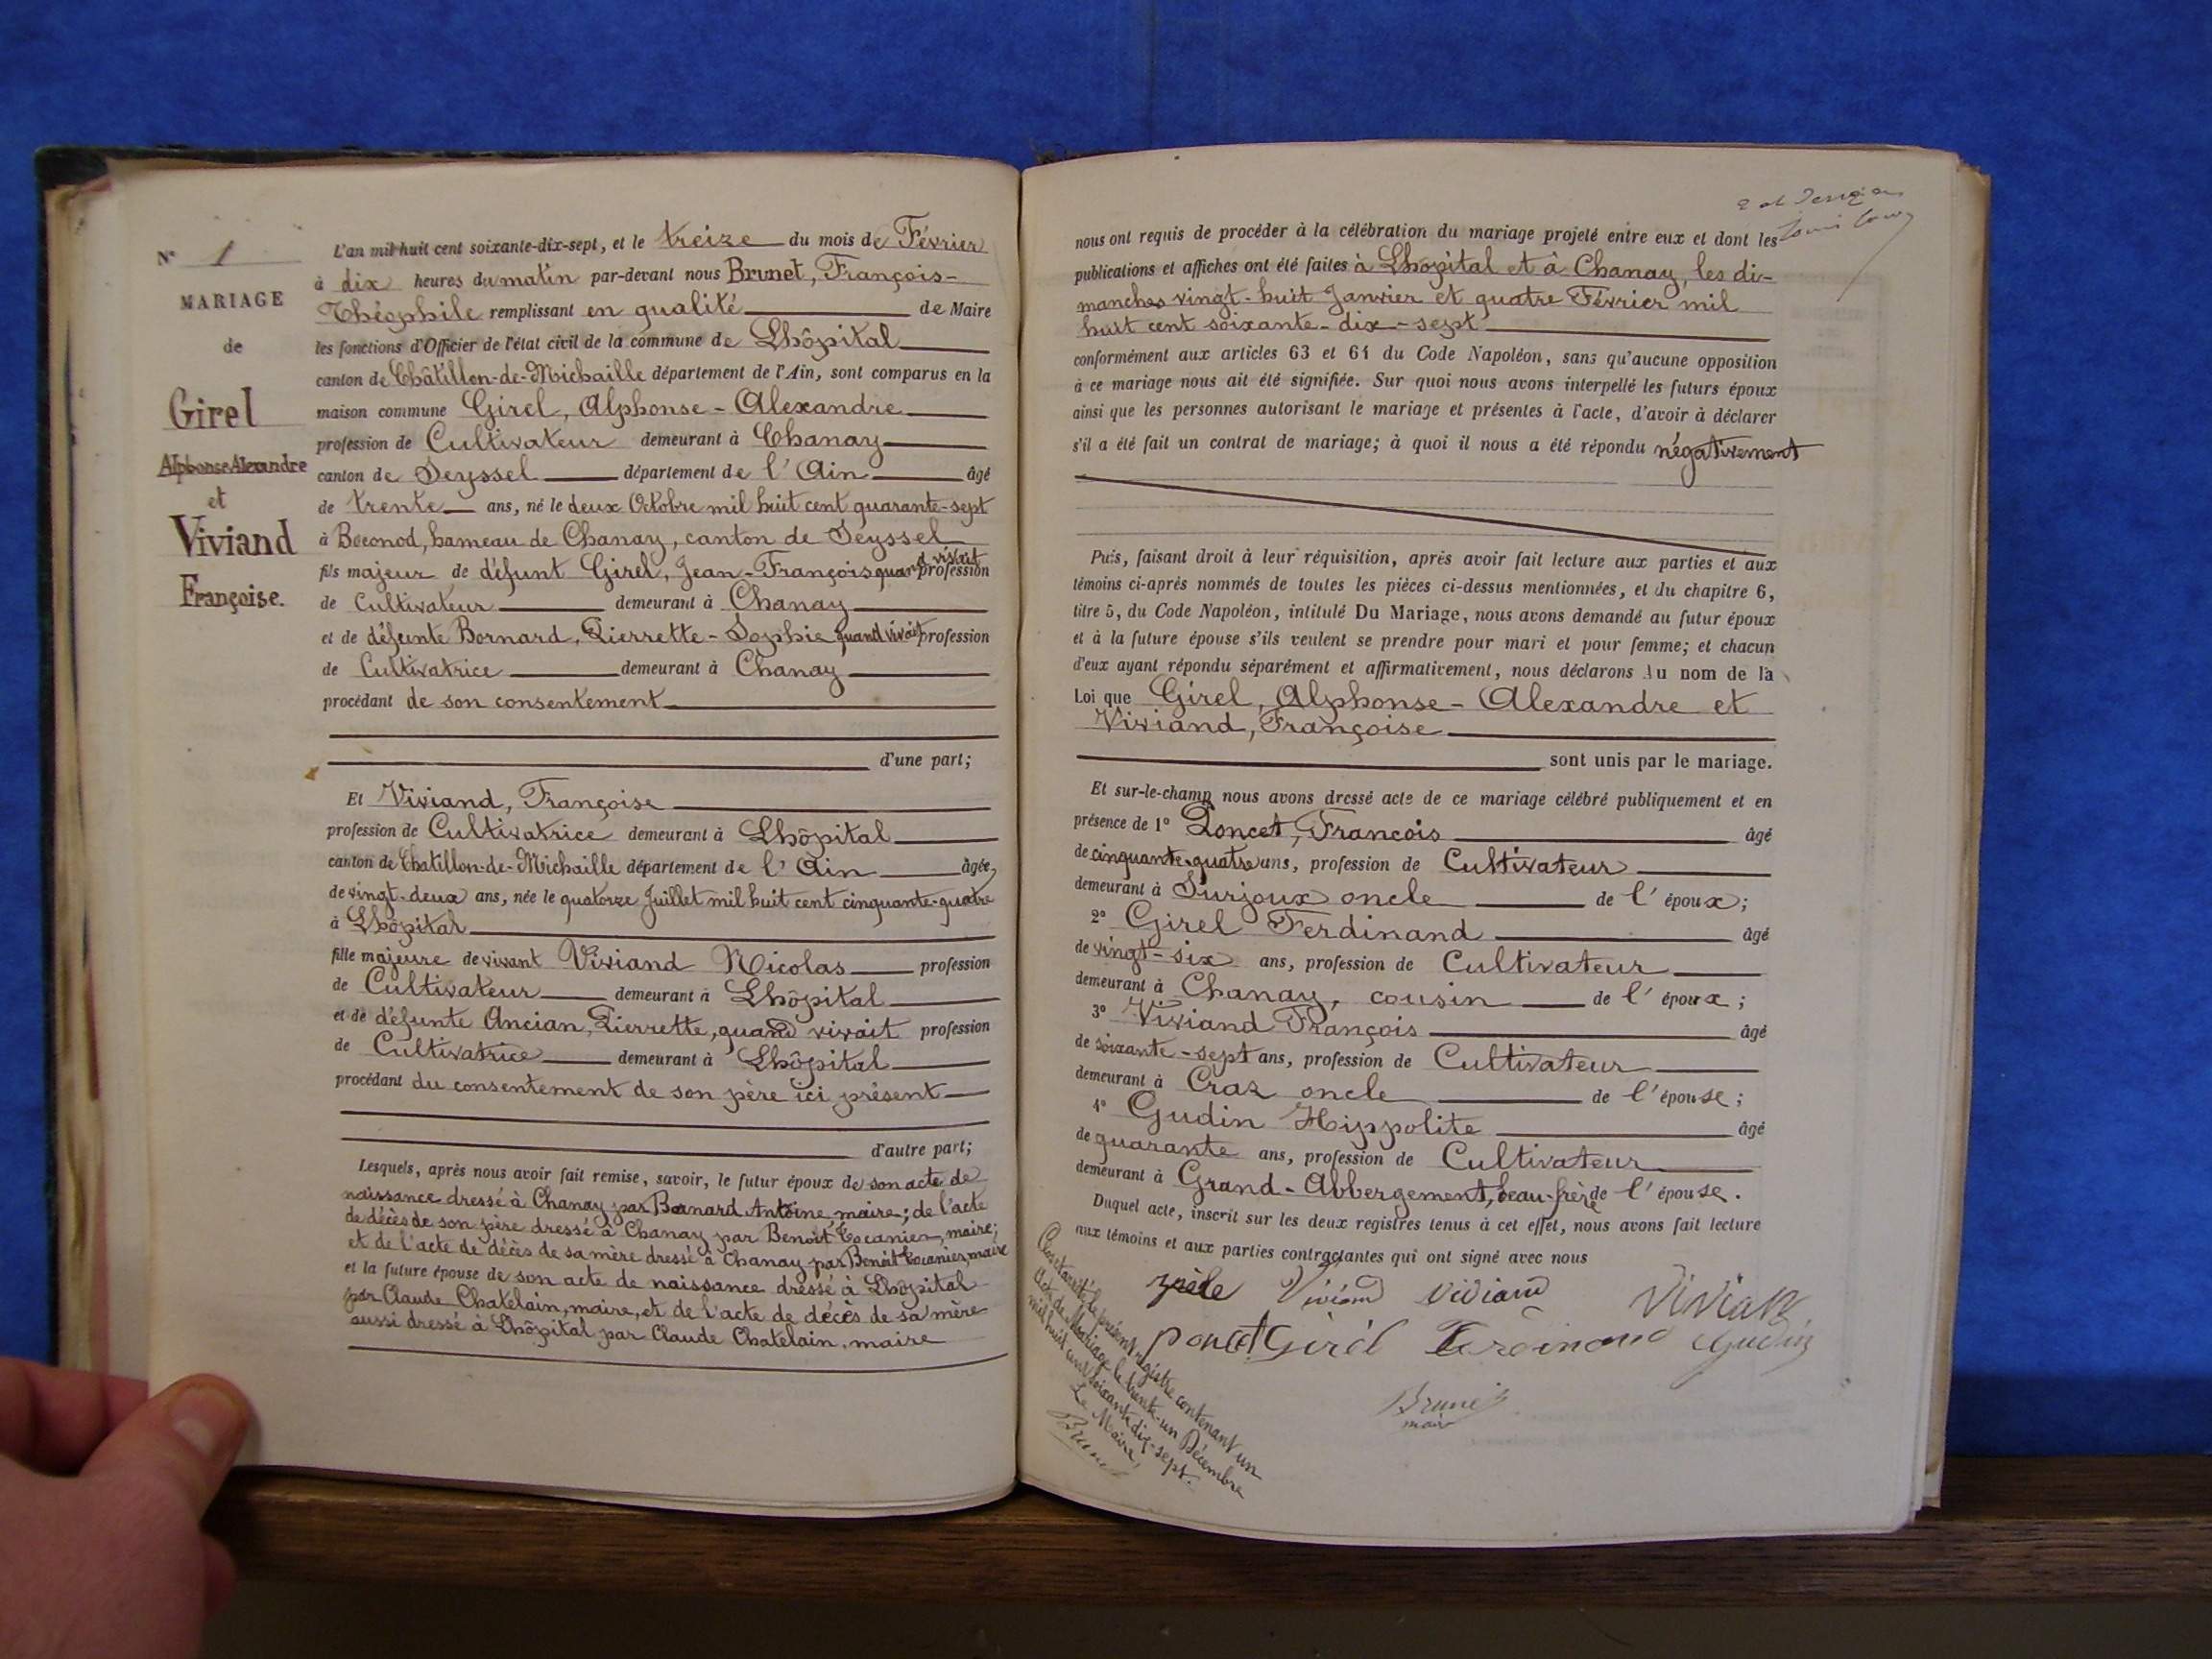 N° 1
MARIAGE
de
Girel
Alphonse Alexandre
et
Viviand
Françoise.
L'an mil huit cent soixante-dix-sept, et le treize du mois de Février
à dix heures du matin par-devant nous Brunet, François-
Théophile remplissant en qualité de Maire
les fonctions d'Officier de l'état civil de la commune de Lhôpital
canton de Châtillon-de-Michaille département de l'Ain, sont comparus en la
maison commune Girel, Alphonse-Alexandre
profession de Cultivateur demeurant à Chanay
canton de Seyssel département de l'Ain âgé
de trente ans, né le deux Octobre mil huit cent quarante-sept
à Boconod, hameau de Chanay, canton de Seyssel
fils majeur de défunt Girel, Jean-François quand vivait profession
de Cultivateur demeurant à Chanay
et de défunte Bornard, Pierrette-Sophie quand vivait profession
de Cultivatrice demeurant à Chanay
procédant de son consentement
d'une part;
Et Viviand, Françoise
profession de Cultivatrice demeurant à Lhôpital
canton de Chatillon-de-Michaille département de l'Ain âgée
de vingt-deux ans, née le quatorze Juillet mil huit cent cinquante-quatre
à Lhôpital
fille majeure de vivant Viviand Nicolas profession
de Cultivateur demeurant à Lhôpital
et de défunte Ancian, Pierrette, quand vivait profession
de Cultivatrice demeurant à Lhôpital
procédant du consentement de son père ici présent
d'autre part;
Lesquels, après nous avoir fait remise, savoir, le futur époux de son acte de
naissance dressé à Chanay par Bornard Antoine, maire; de l'acte
de décès de son père dressé à Chanay par Benoit Cocanier, maire;
et de l'acte de décès de sa mère dressé à Chanay par Benoit Cocanier, maire
et la future épouse de son acte de naissance dressé à Lhôpital
par Claude Chatelain, maire, et de l'acte de décès de sa mère
aussi dressé à Lhôpital par Claude Chatelain, maire
nous ont requis de procéder à la célébration du mariage projeté entre eux et dont les
publications et affiches ont été faites à Lhôpital et à Chanay, les di-
manches vingt-huit Janvier et quatre Février mil
huit cent soixante-dix-sept
conformément aux articles 63 et 64 du Code Napoléon, sans qu'aucune opposition
à ce mariage nous ait été signifiée. Sur quoi nous avons interpellé les futurs époux
ainsi que les personnes autorisant le mariage et présentes à l'acte, d'avoir à déclarer
s'il a été fait un contrat de mariage; à quoi il nous a été répondu négativement
Puis, faisant droit à leur réquisition, après avoir fait lecture aux parties et aux
témoins ci-après nommés de toutes les pièces ci-dessus mentionnées, et du chapitre 6,
titre 5, du Code Napoléon, intitulé Du Mariage, nous avons demandé au futur époux
et à la future épouse s'ils veulent se prendre pour mari et pour femme; et chacun
d'eux ayant répondu séparément et affirmativement, nous déclarons Au nom de la
Loi que Girel, Alphonse-Alexandre et
Viviand, Françoise
sont unis par le mariage.
Et sur-le-champ nous avons dressé acte de ce mariage célébré publiquement et en
présence de 1° Poncet, François âgé
de cinquante-quatre ans, profession de Cultivateur
demeurant à Surjoux oncle de l'époux;
2° Girel Ferdinand âgé
de vingt-six ans, profession de Cultivateur
demeurant à Chanay, cousin de l'époux;
3° Viviand François âgé
de soixante-sept ans, profession de Cultivateur
demeurant à Craz oncle de l'épouse;
4° Gudin Hippolite âgé
de quarante ans, profession de Cultivateur
demeurant à Grand-Abbergement, beau-frère de l'épouse.
Duquel acte, inscrit sur les deux registres tenus à cet effet, nous avons fait lecture
aux témoins et aux parties contractantes qui ont signé avec nous
Viviand Viviand Vivian
Poncet Girel Ferdinand Gudin
Brunet
maire
Clos et arrêté le présent régistre contenant un
Acte de Mariage le trente-un Décembre
mil huit cent soixante dix-sept.
Le Maire,
Brunet